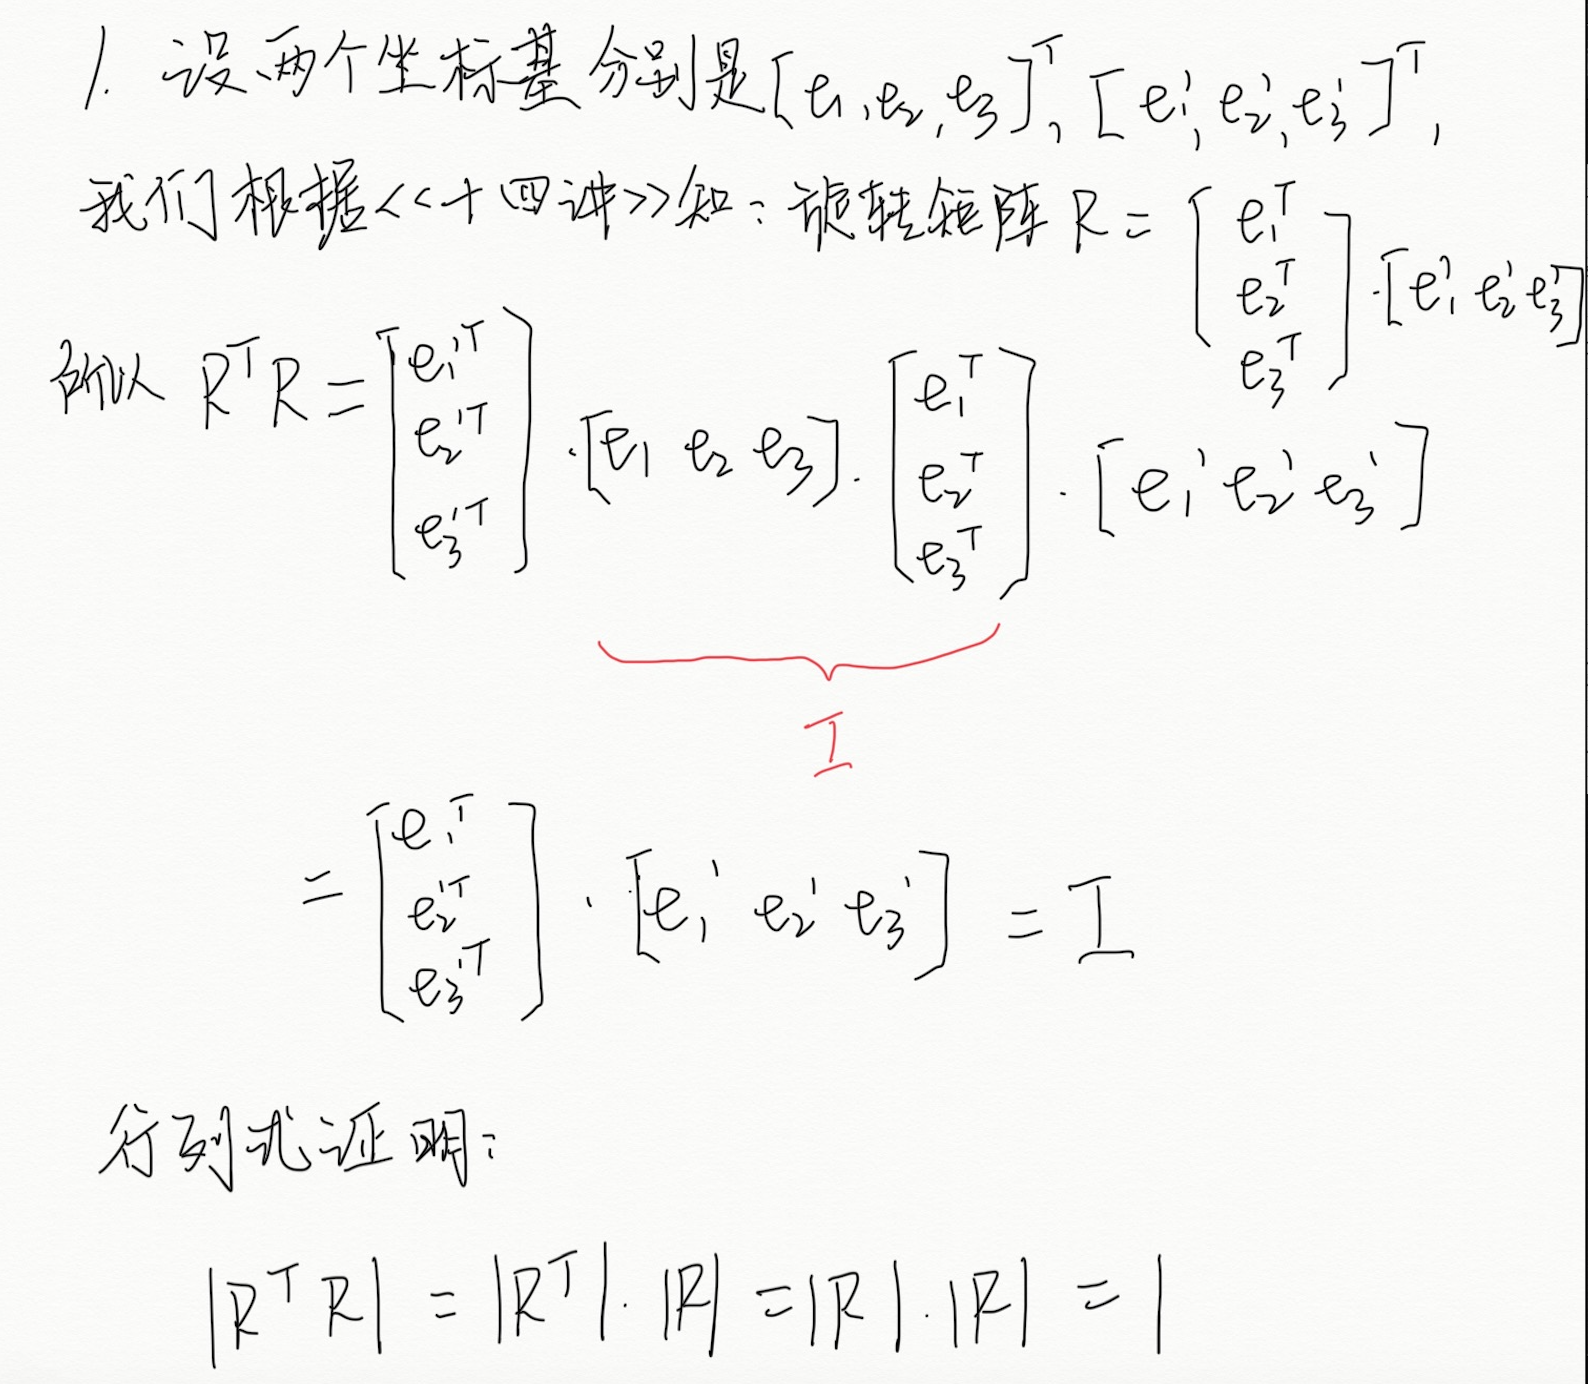 1. 设两个坐标基分别是[e₁, e₂, e₃]ᵀ, [e₁', e₂', e₃']ᵀ,
我们根据<<十四讲>>知: 旋转矩阵 R = [e₁ᵀ e₂ᵀ e₃ᵀ] · [e₁' e₂' e₃']
所以 RᵀR = [e₁'ᵀ e₂'ᵀ e₃'ᵀ] · [e₁ e₂ e₃] · [e₁ᵀ e₂ᵀ e₃ᵀ] · [e₁' e₂' e₃']
I
= [e₁'ᵀ e₂'ᵀ e₃'ᵀ] · [e₁' e₂' e₃'] = I
行列式证明:
|RᵀR| = |Rᵀ| · |R| = |R| · |R| = 1